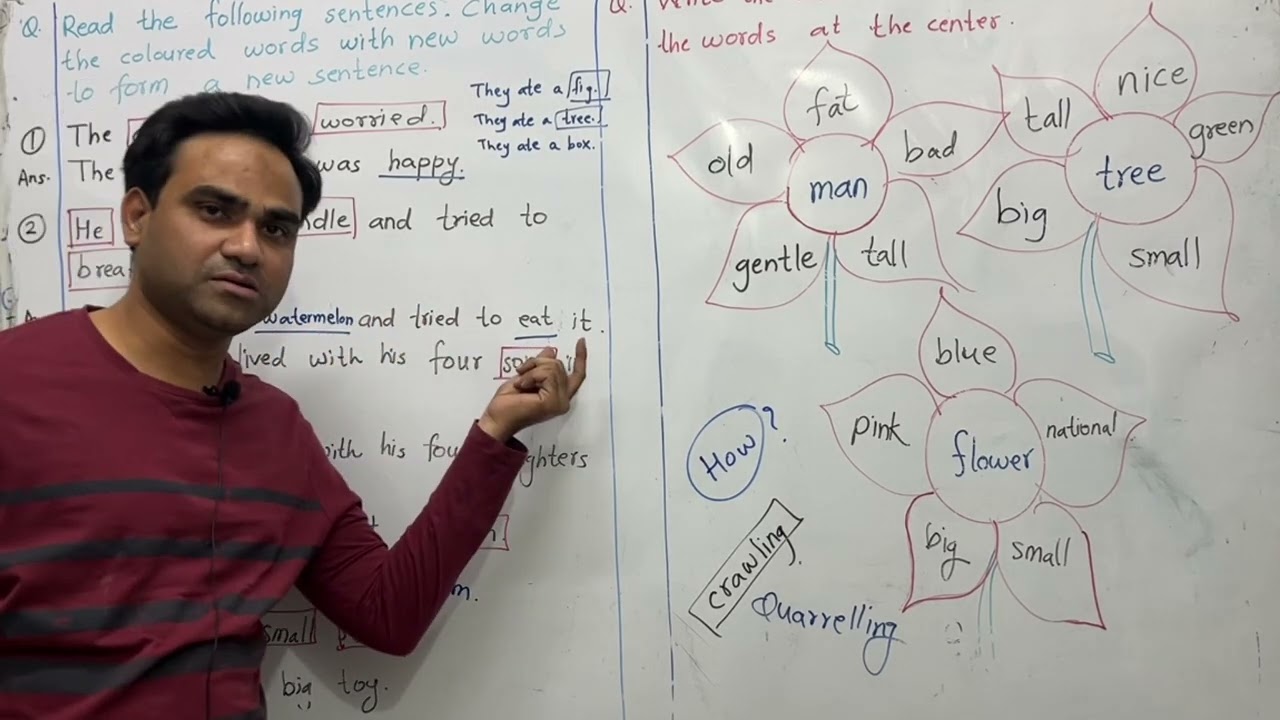 Q. Read the following sentences. Change
the coloured words with new words
to form a new sentence.
They ate a fig.
They ate a tree.
They ate a box.
① The worried.
Ans. The was happy.
② He and tried to
watermelon and tried to eat it.
lived with his four
with his
small
big toy.
Q.
the words at the center.
fat
old
bad
man
gentle
tall
nice
tall
green
tree
big
small
blue
pink
national
flower
big
small
How?
crawling.
Quarrelling